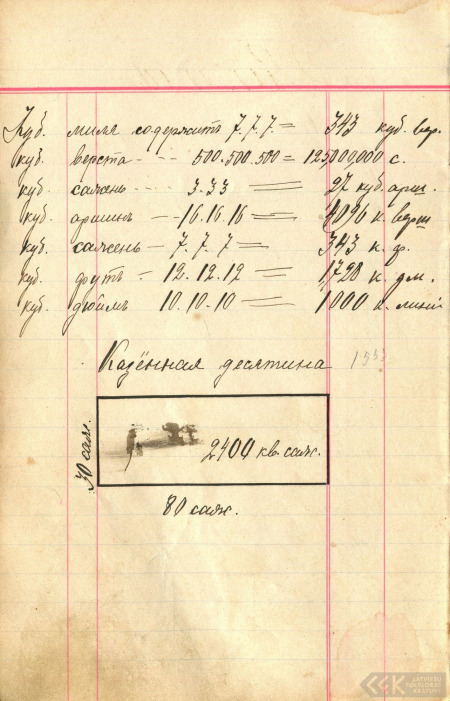 Куб. миля содержитъ 7.7.7. = 343 куб. вер.
куб. верста - - - 500.500.500 = 125000000 с.
куб. сажень - - 3.3.3 = 27 куб. арш.
куб. аршинъ - - 16.16.16 = 4096 к. верш
куб. сажень - 7. 7. 7 = 343 к. ф.
куб. футъ - 12. 12. 12 = 1728 к. дм.
куб. дюймъ 10. 10. 10 = 1000 к. линій
Казённая десятина
30 саж.
2400 кв. саж.
80 саж.
LATVIEŠU
FOLKLORAS
KRĀTUVE